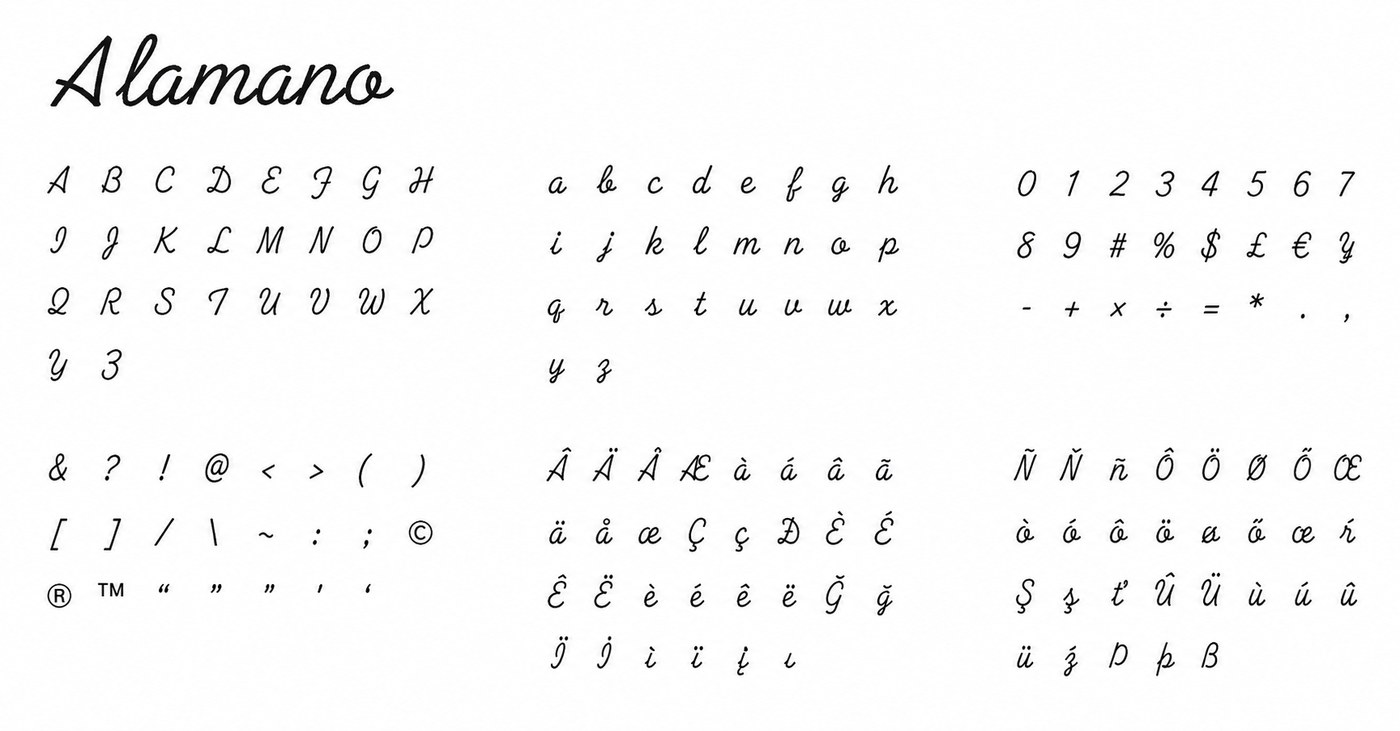 Alamano
A B C D E F G H
I J K L M N O P
Q R S T U V W X
Y Z
a b c d e f g h
i j k l m n o p
q r s t u v w x
y z
0 1 2 3 4 5 6 7
8 9 # % $ £ € ¥
- + × ÷ = * . ,
& ? ! @ < > ( )
[ ] / \ ~ : ; ©
® ™ “ ” ” ' ‘
Â Ä Å Æ à á â ã
ä å æ Ç ç Đ È É
Ê Ë è é ê ë Ğ ğ
Ï İ ì ï į ı
Ñ Ň ñ Ô Ö Ø Ő Œ
ò ó ô ö ø ő œ ŕ
Ş ş ť Û Ü ù ú û
ü ź Þ þ ß